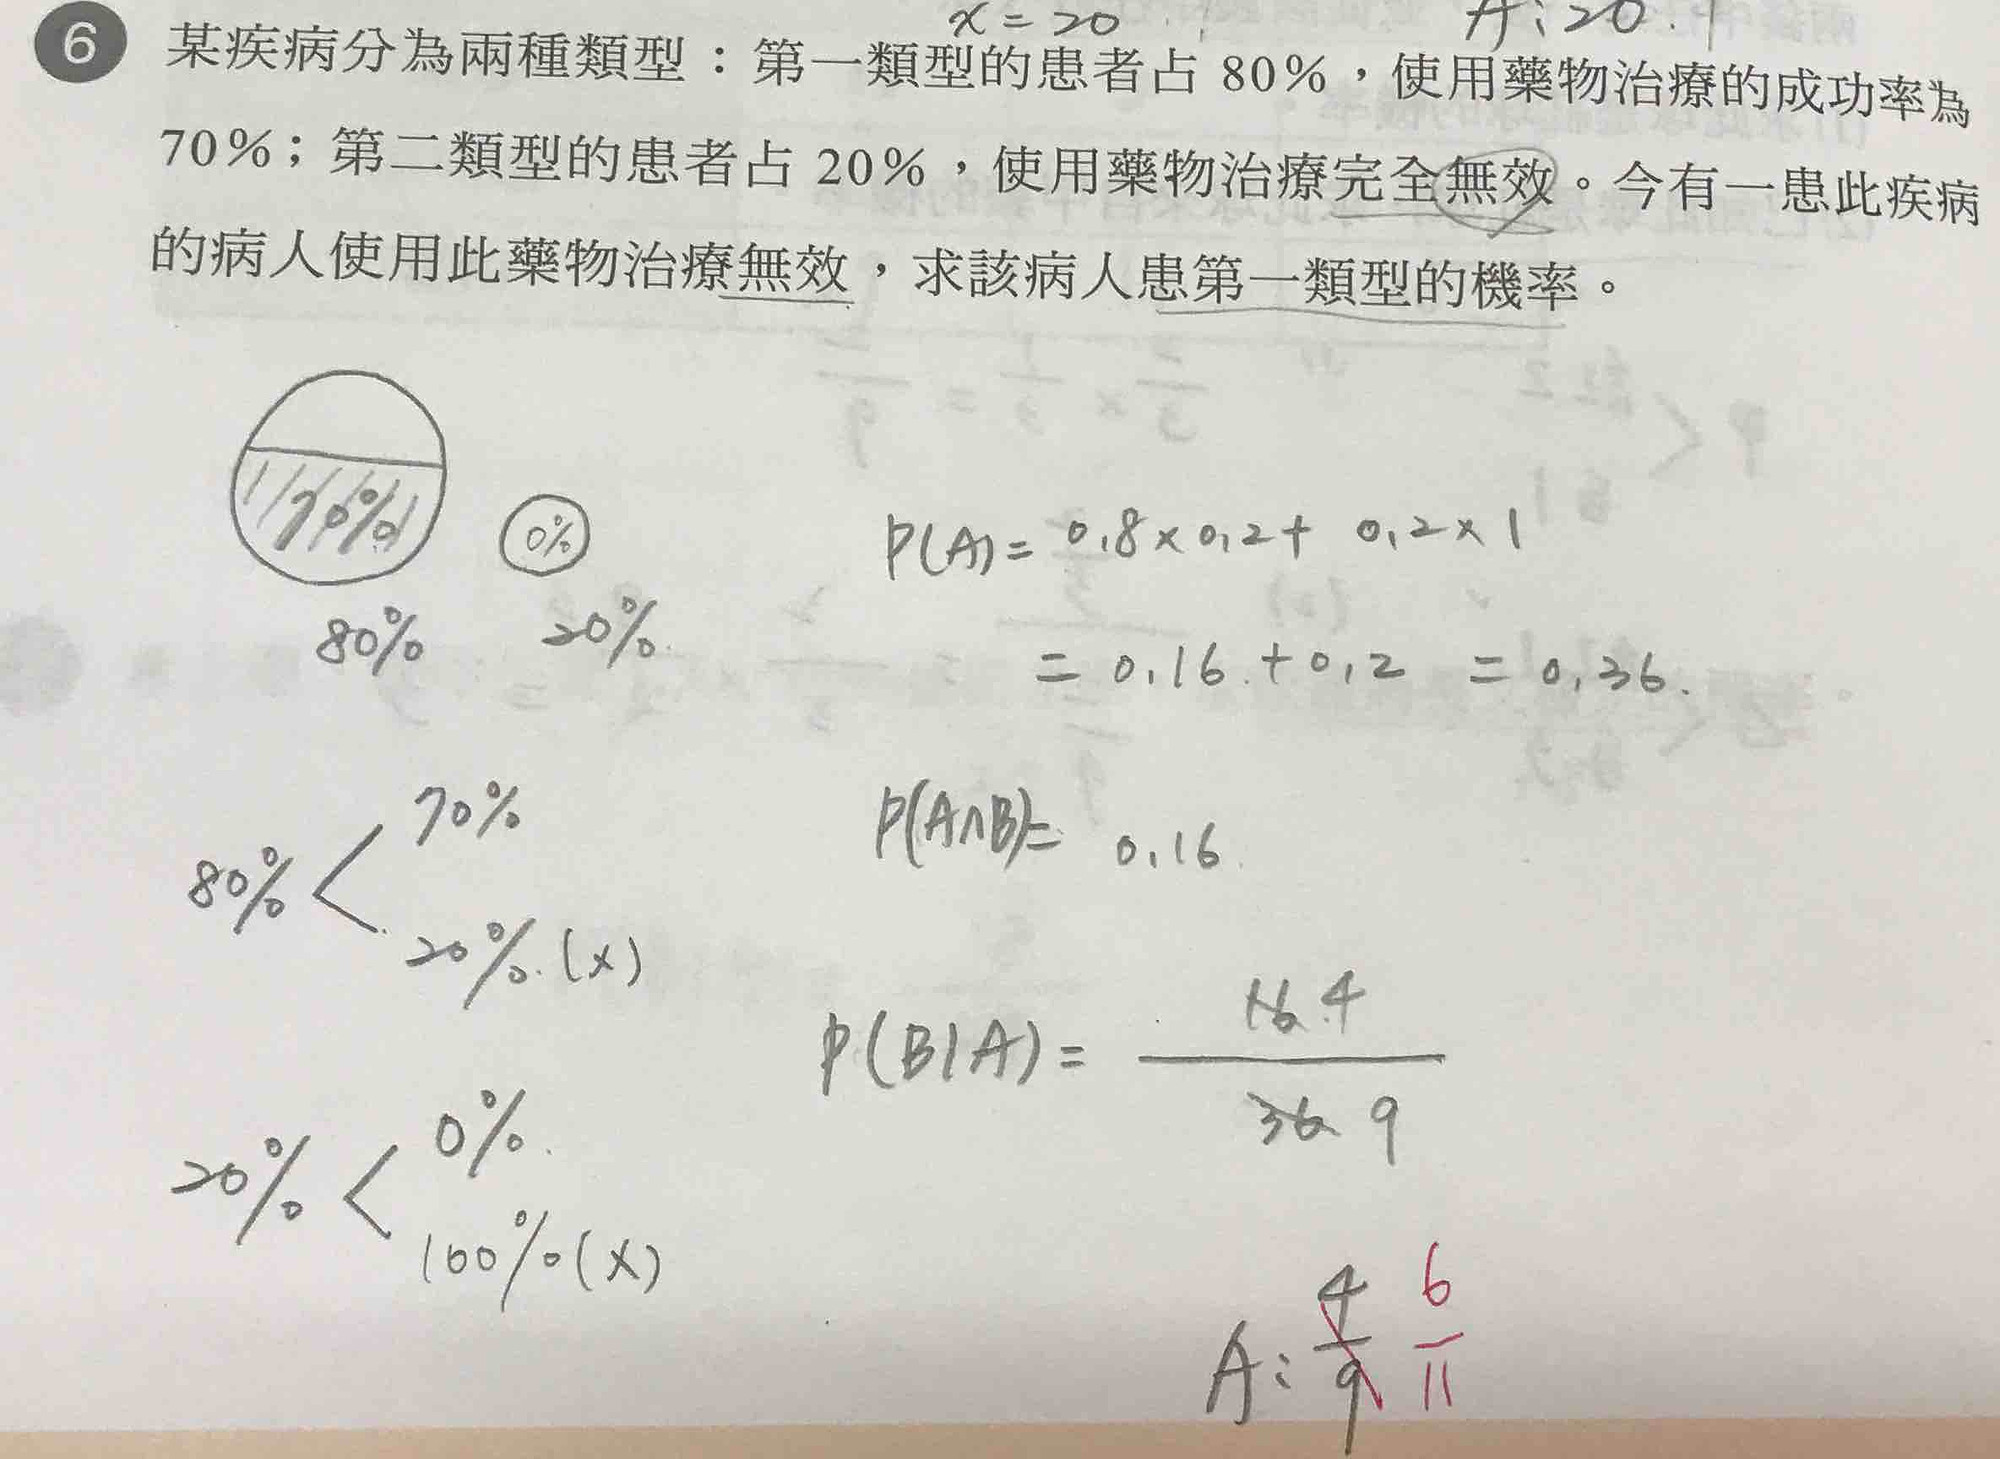 x = 20
A: 20.
6 某疾病分為兩種類型：第一類型的患者占 80%，使用藥物治療的成功率為
70%；第二類型的患者占 20%，使用藥物治療完全無效。今有一患此疾病
的病人使用此藥物治療無效，求該病人患第一類型的機率。
70%
0%
80%
20%
P(A) = 0.8 × 0.2 + 0.2 × 1
= 0.16 + 0.2 = 0.36
80% < 70%
20% (×)
P(A∩B) = 0.16
P(B|A) = 16 4
36 9
20% < 0%
100% (×)
A: 4/9 6/11